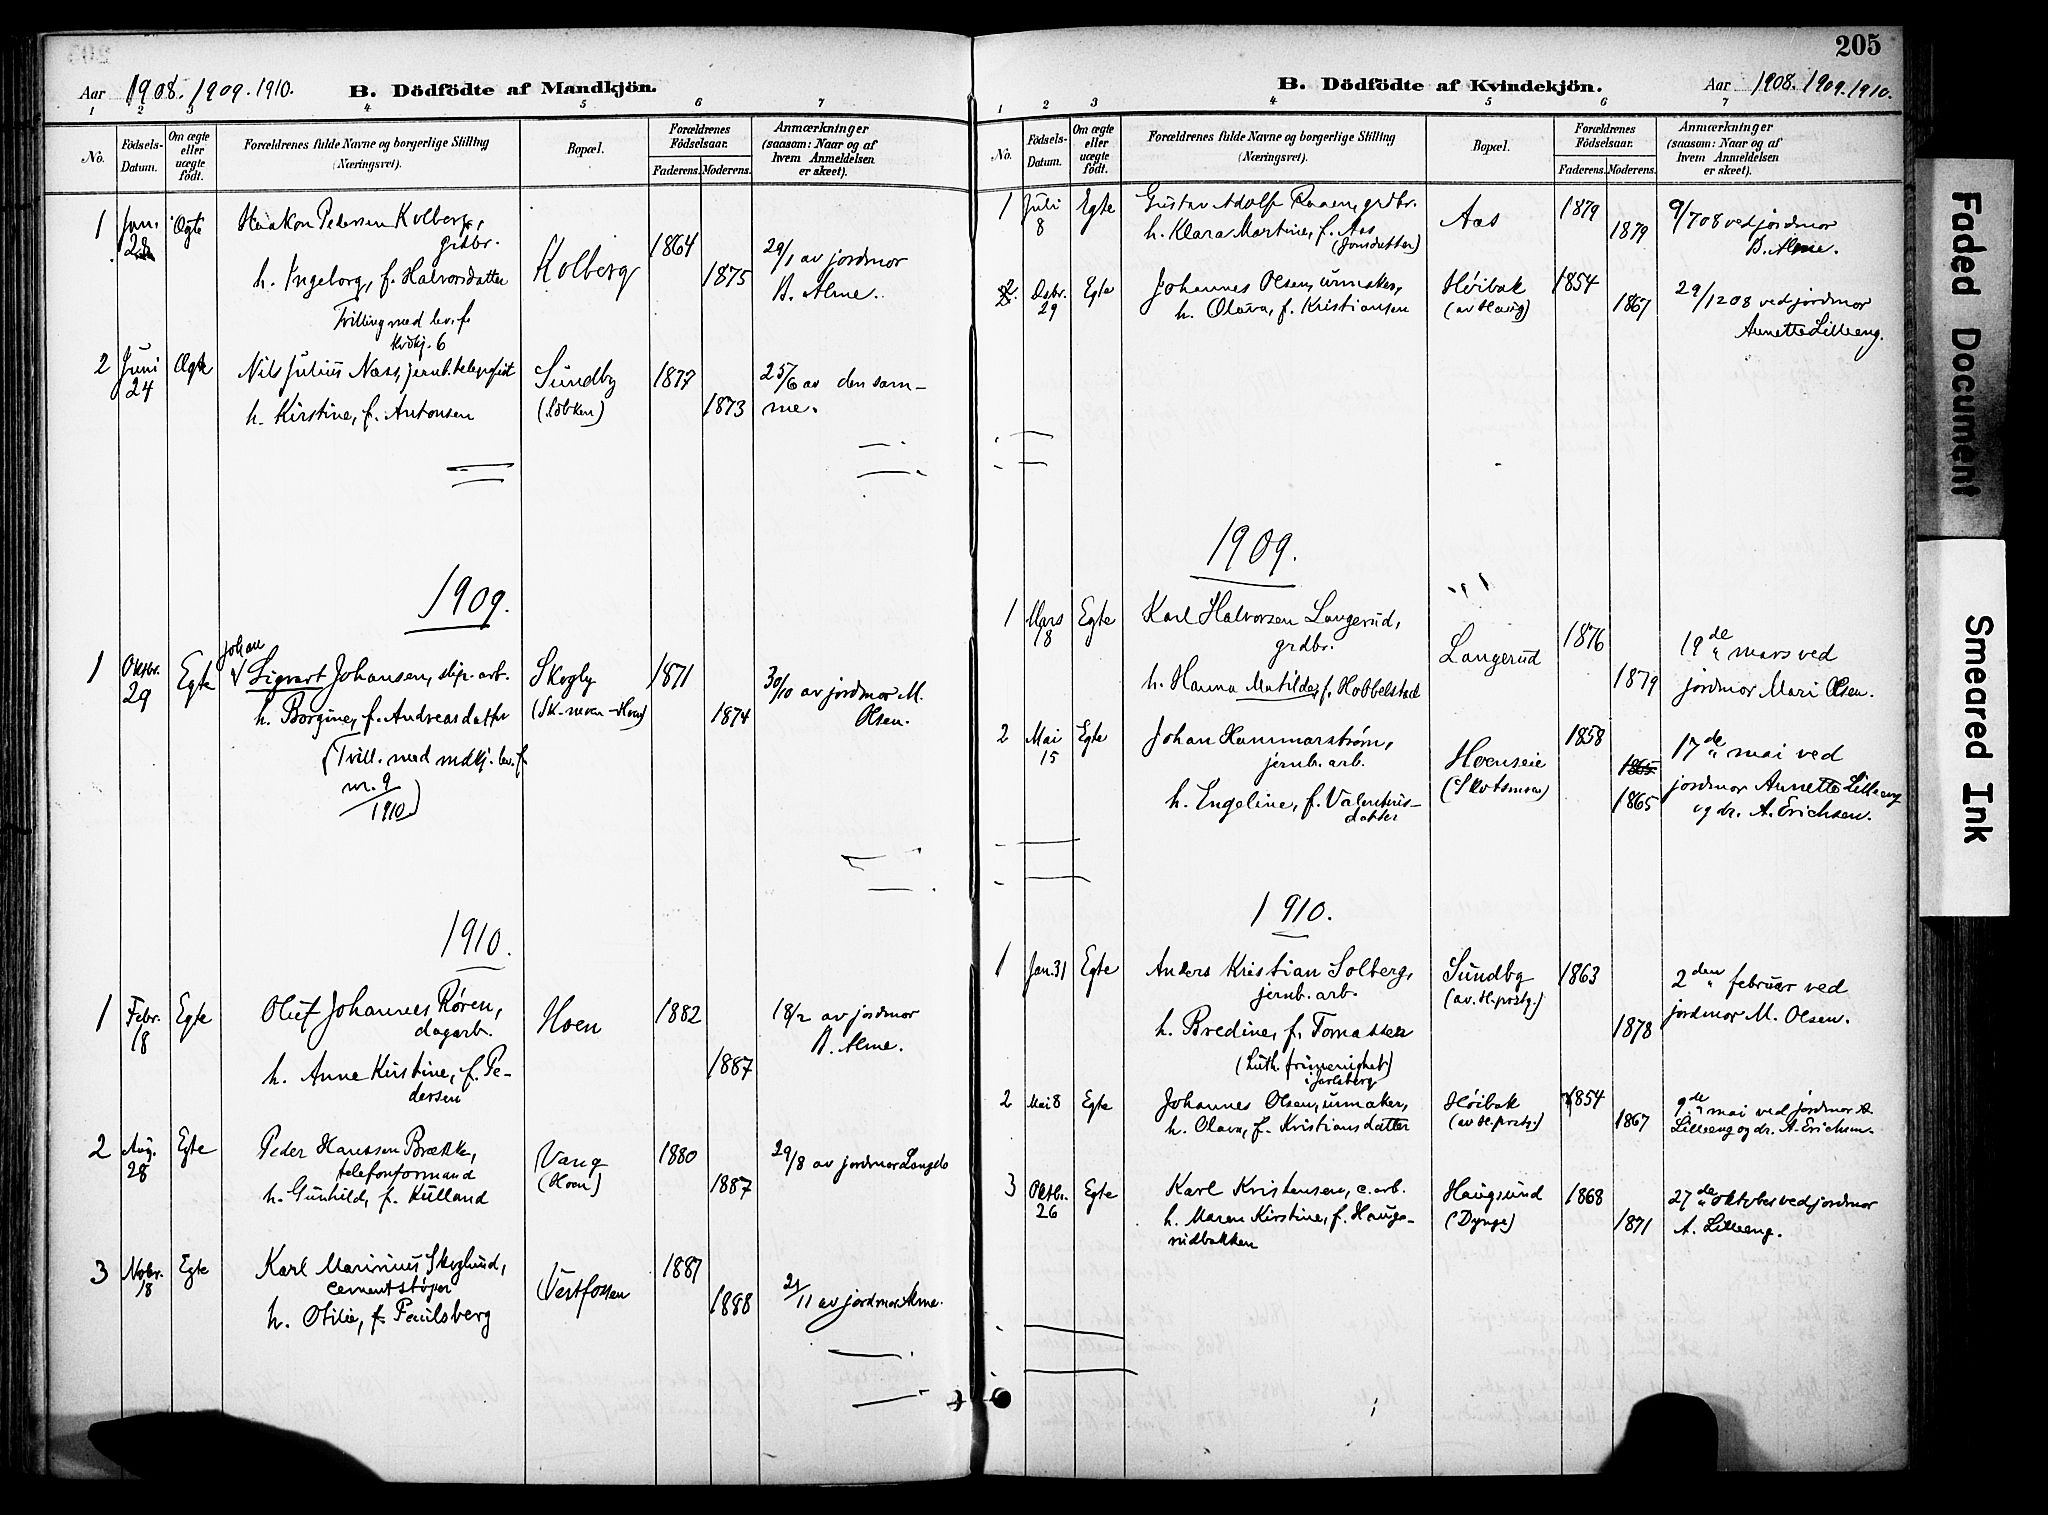 205
Aar 1908. 1909. 1910. B. Dödfödte af Mandkjön.
1 2 3 4 5 6 7
No. Födsels-Datum. Om ægte eller uægte födt. Forældrenes fulde Navne og borgerlige Stilling (Næringsvei). Bopæl. Forældrenes Födselsaar. Faderens. Moderens. Anmærkninger (saasom: Naar og af hvem Anmeldelsen er skeet).
1 Jan. 28 Ægte Haakon Pedersen Kolberg,
grdbr.
h. Ingeborg, f. Halvorsdatter
Kolberg 1864 1875 29/1 av jordmor
B. Alme.
Tvilling med lev. f.
kvkj. 6
2 Juni 24 Ægte Nils Julius Næss, jernb.telegrafist
h. Kirstine, f. Antonsen
Sundby
(Lökken)
1877 1873 25/6 av den sam-
me.
1909.
1 Oktbr. 29 Egte Johan
Sigvart Johansen, slip. arb.
h. Borgine, f. Andreasdatter
(Tvill. med mdkj. lev. f.
nr. 9
1910)
Skogly
1871 1874 30/10 av jordmor M.
Olsen.
1910.
1 Febr. 18 Egte Oluf Johannes Røren,
dagarb.
h. Anne Kirstine, f. Pe-
dersen
Hoen 1882 1887 18/2 av jordmor
B. Alme.
2 Aug. 28 Egte Peder Hanssen Brække,
telefonformand
h. Gunhild, f. Kulland
Vang
(Hoen)
1880 1887 29/8 av jordmor Langelo
3 Novbr. 18 Egte Karl Marinius Skoglund,
cementstøper
h. Otilie, f. Paulsberg
Vestfossen 1887 1888 21/11 av jordmor Alme.
B. Dödfödte af Kvindekjön. Aar 1908. 1909. 1910.
1 2 3 4 5 6 7
No. Födsels-Datum. Om ægte eller uægte födt. Forældrenes fulde Navne og borgerlige Stilling (Næringsvei). Bopæl. Forældrenes Födselsaar. Faderens. Moderens. Anmærkninger (saasom: Naar og af hvem Anmeldelsen er skeet).
1 Juli 8 Egte Gustav Adolf Raaen, grdbr.
h. Klara Martine, f. Aas
(Jonsdatter)
Aas 1879 1879 9/7 08 ved jordmor
B. Alme.
2. Dsbr. 29 Egte Johannes Olsen, urmaker,
h. Olava, f. Kristiansen
Høibak
(av Haug)
1854 1867 29/12 08 ved jordmor
Annette Lilleeng.
1909.
1 Mars 18 Egte Karl Halvorsen Langerud,
grdbr.
h. Hanna Matilde, f. Hobbelstad
Langerud 1876 1879 19de mars ved
jordmor Mari Olsen.
2 Mai 15 Egte Johan Hammarstrøm,
jernb. arb.
h. Engeline, f. Valentins-
datter
Hoenseie
(Skotsmoen)
1858 1865 1865 17de mai ved
jordmor Annette Lilleeng
og dr. A. Erichsen.
1910.
1 Jan. 31 Egte Anders Kristian Solberg,
jernb. arb.
h. Bredine, f. Tomassen
(Luth. frimenighet)
i Jarlsberg
Sundby
(av H. prstg.)
1863 1878 2den februar ved
jordmor M. Olsen.
2 Mai 8 Egte Johannes Olsen, urmaker,
h. Olava, f. Kristiansdatter
Høibak
(av H. prstg.)
1854 1867 9de mai ved jordmor A.
Lilleeng og dr. A. Erichsen.
3 Oktbr. 26 Egte Karl Kristensen, c. arb.
h. Maren Kirstine, f. Haugs-
rudbakken
Haugsund
(Dynge)
1868 1871 27de oktober ved jordmor
A. Lilleeng.
Faded Document
Smeared Ink